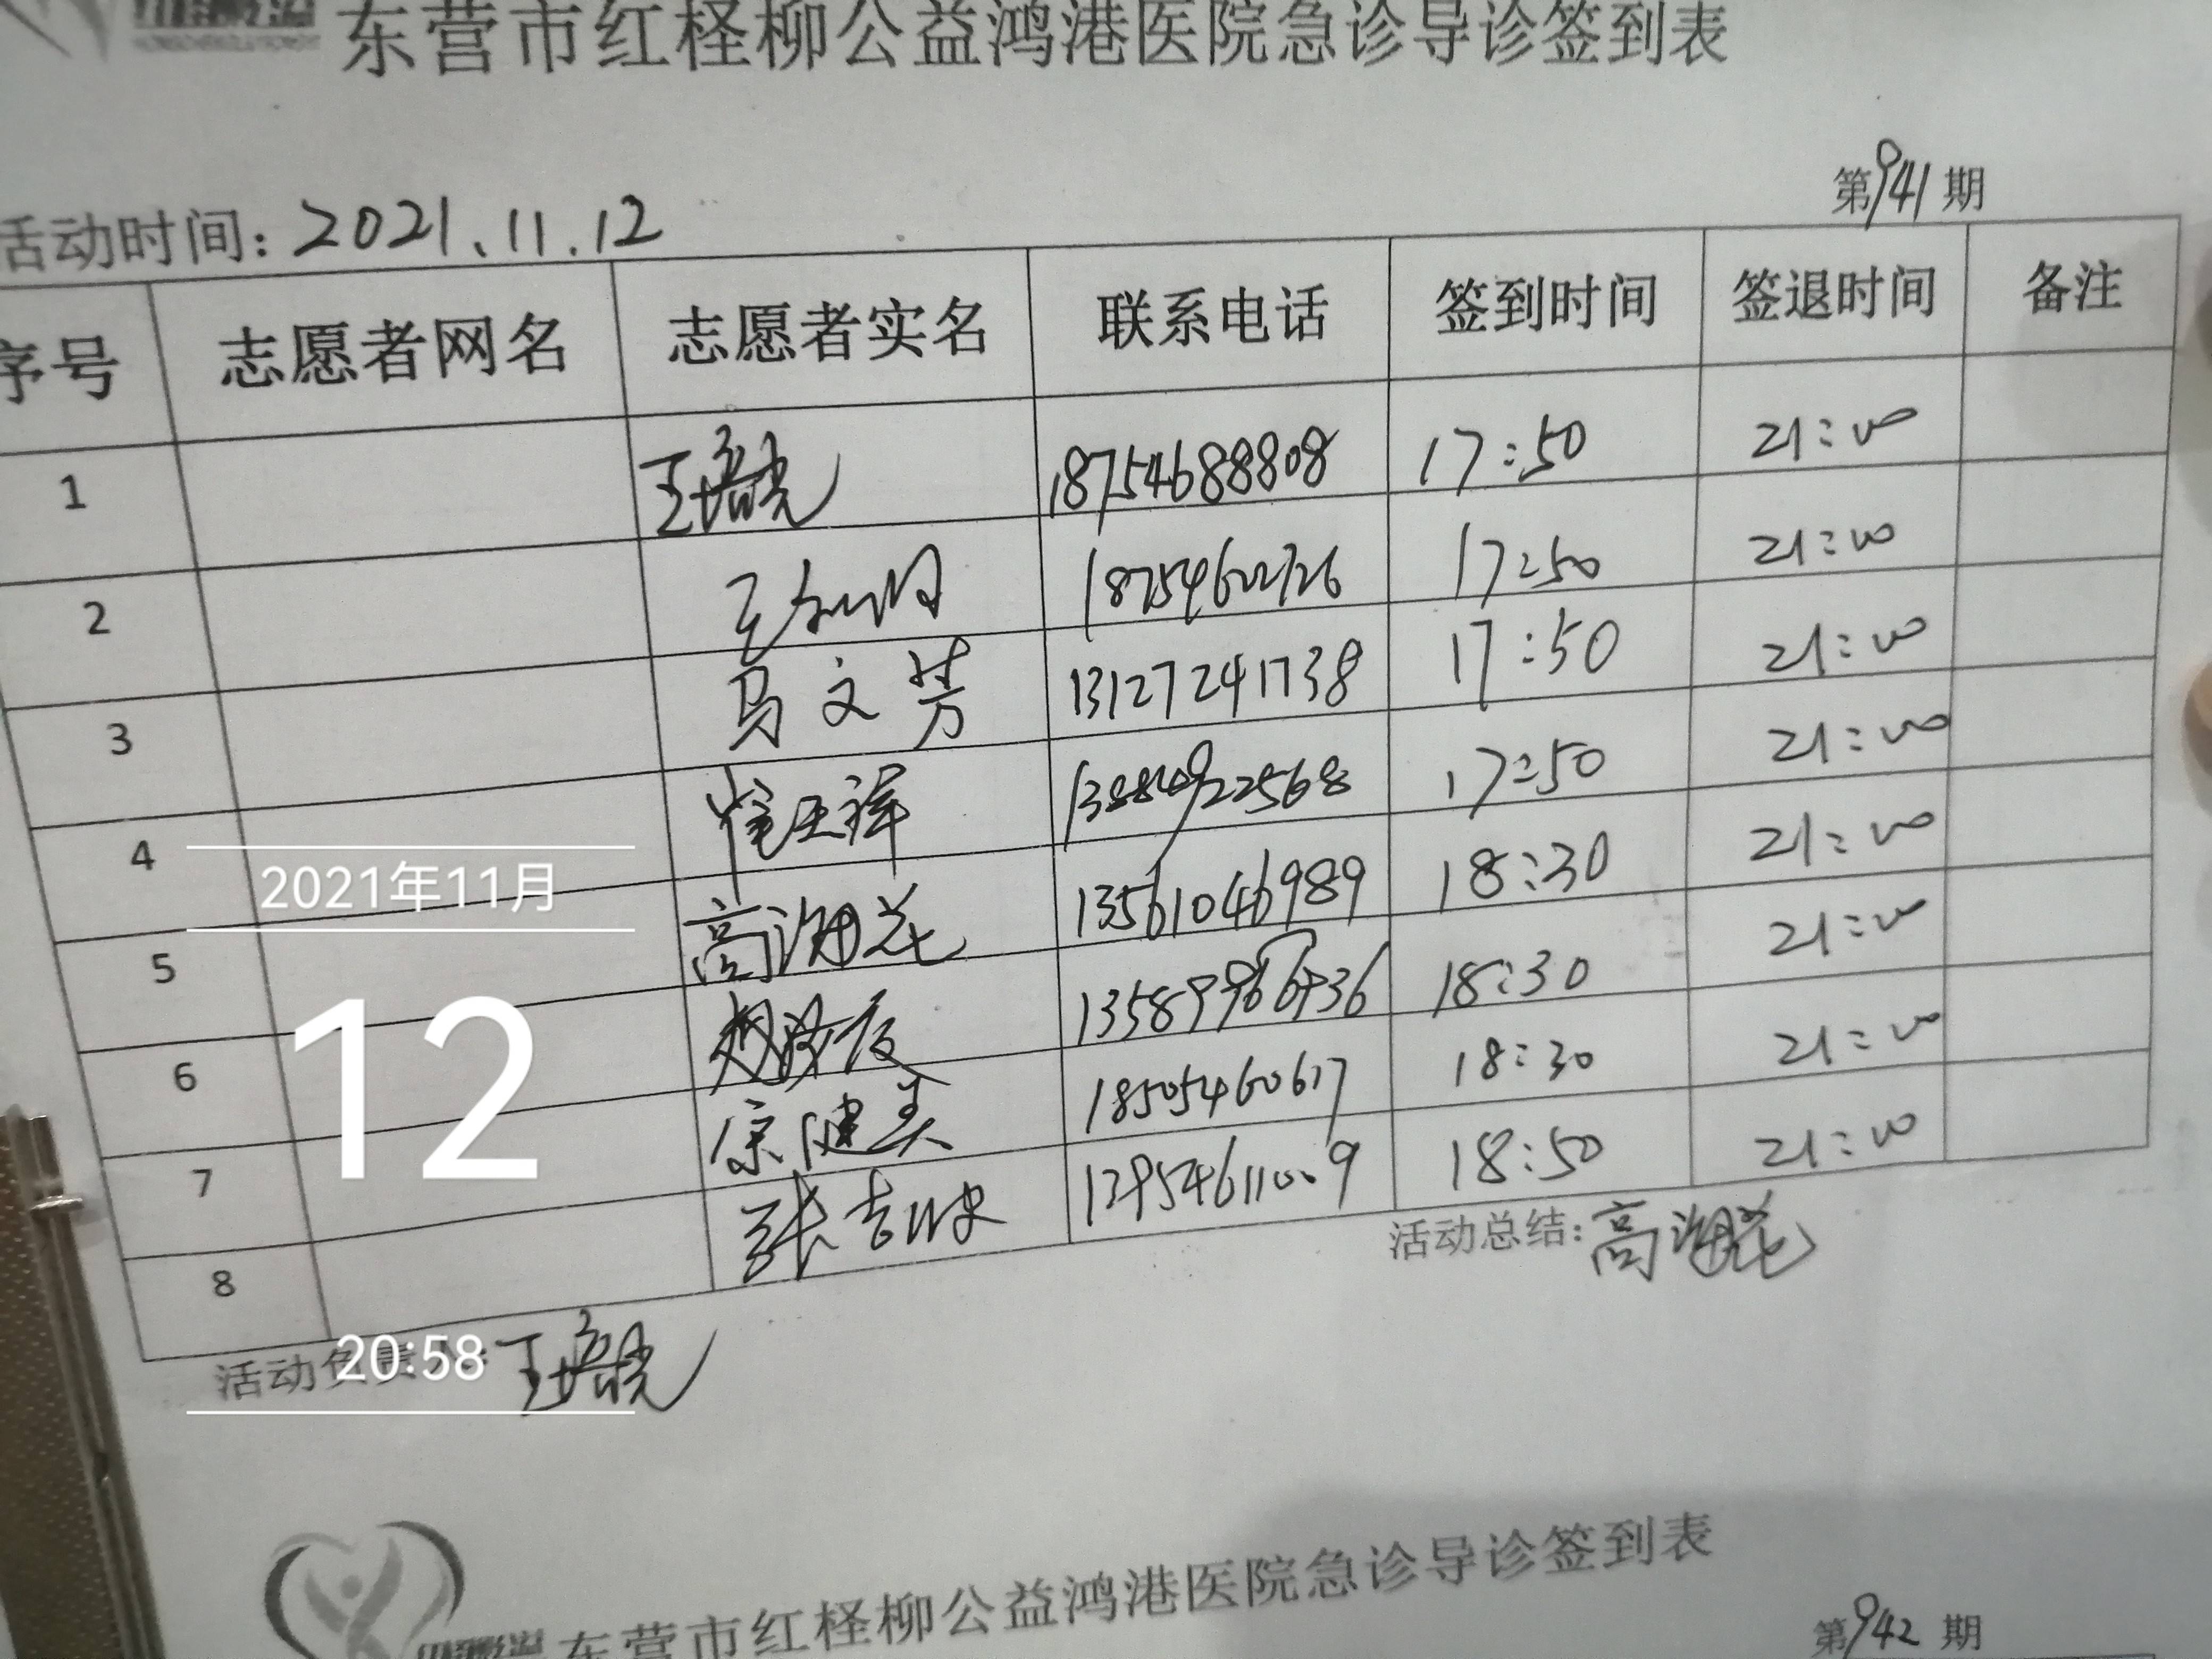 东营市红柽柳公益鸿港医院急诊导诊签到表
第941期
活动时间: 2021.11.12
序号 志愿者网名 志愿者实名 联系电话 签到时间 签退时间 备注
1 18754688808 17:50 21:00
2 17:50 21:00
3 马文芳 13127241738 17:50 21:00
4 17:50 21:00
5 高海花 13561046989 18:30 21:00
6 18:30 21:00
7 宗健美 18505460617 18:30 21:00
8 18:50 21:00
活动总结: 高海花
活动负责人:
2021年11月
12
20:58
东营市红柽柳公益鸿港医院急诊导诊签到表
第942期